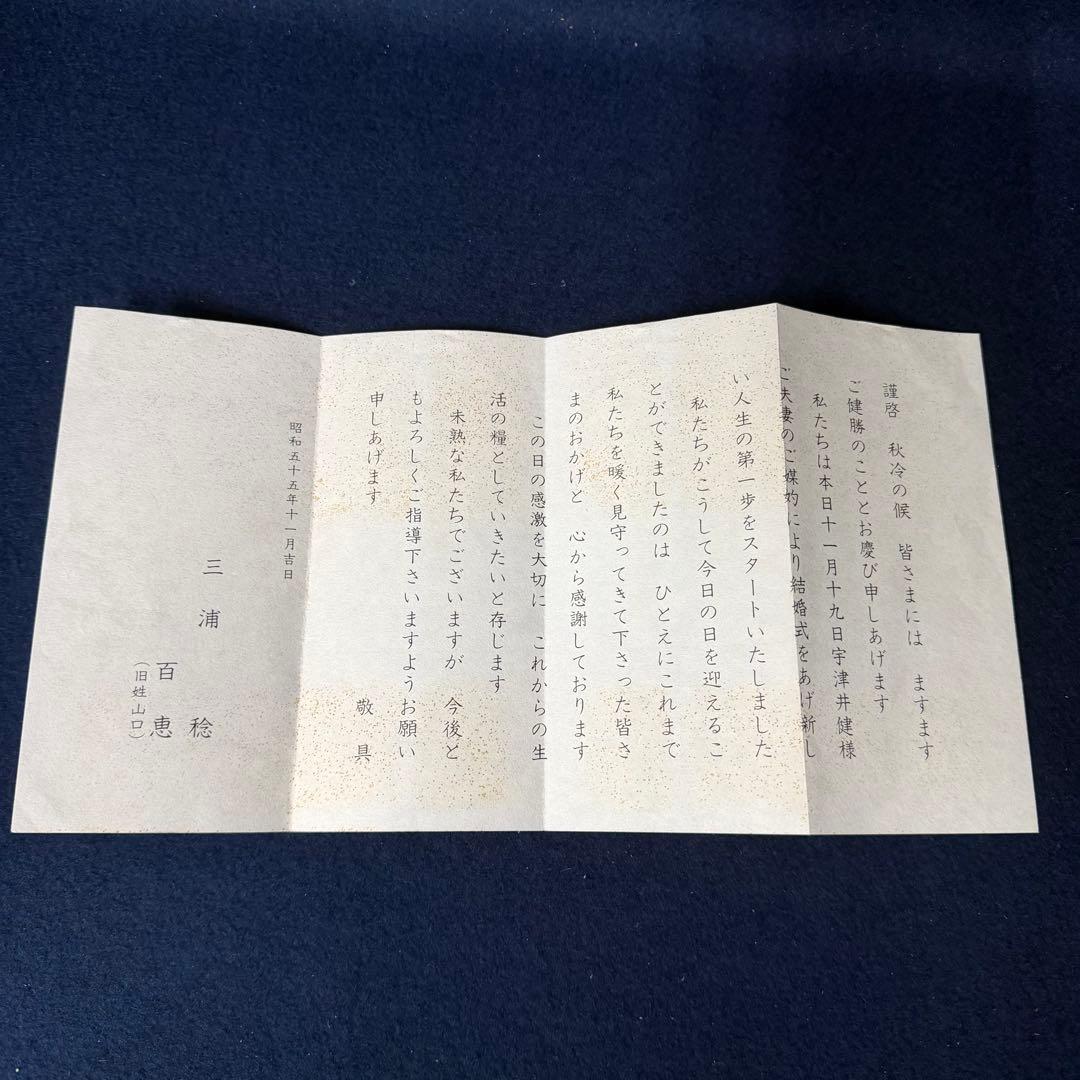 謹啓 秋冷の候 皆さまには ますます
ご健勝のこととお慶び申しあげます
私たちは本日十一月十九日宇津井健様
ご夫妻のご媒妁により結婚式をあげ新し
い人生の第一歩をスタートいたしました
私たちがこうして今日の日を迎えるこ
とができましたのは ひとえにこれまで
私たちを暖く見守ってきて下さった皆さ
まのおかげと 心から感謝しております
この日の感激を大切に これからの生
活の糧としていきたいと存じます
未熟な私たちでございますが 今後と
もよろしくご指導下さいますようお願い
申しあげます
敬具
昭和五十五年十一月吉日
三浦 稔
百恵
(旧姓山口)